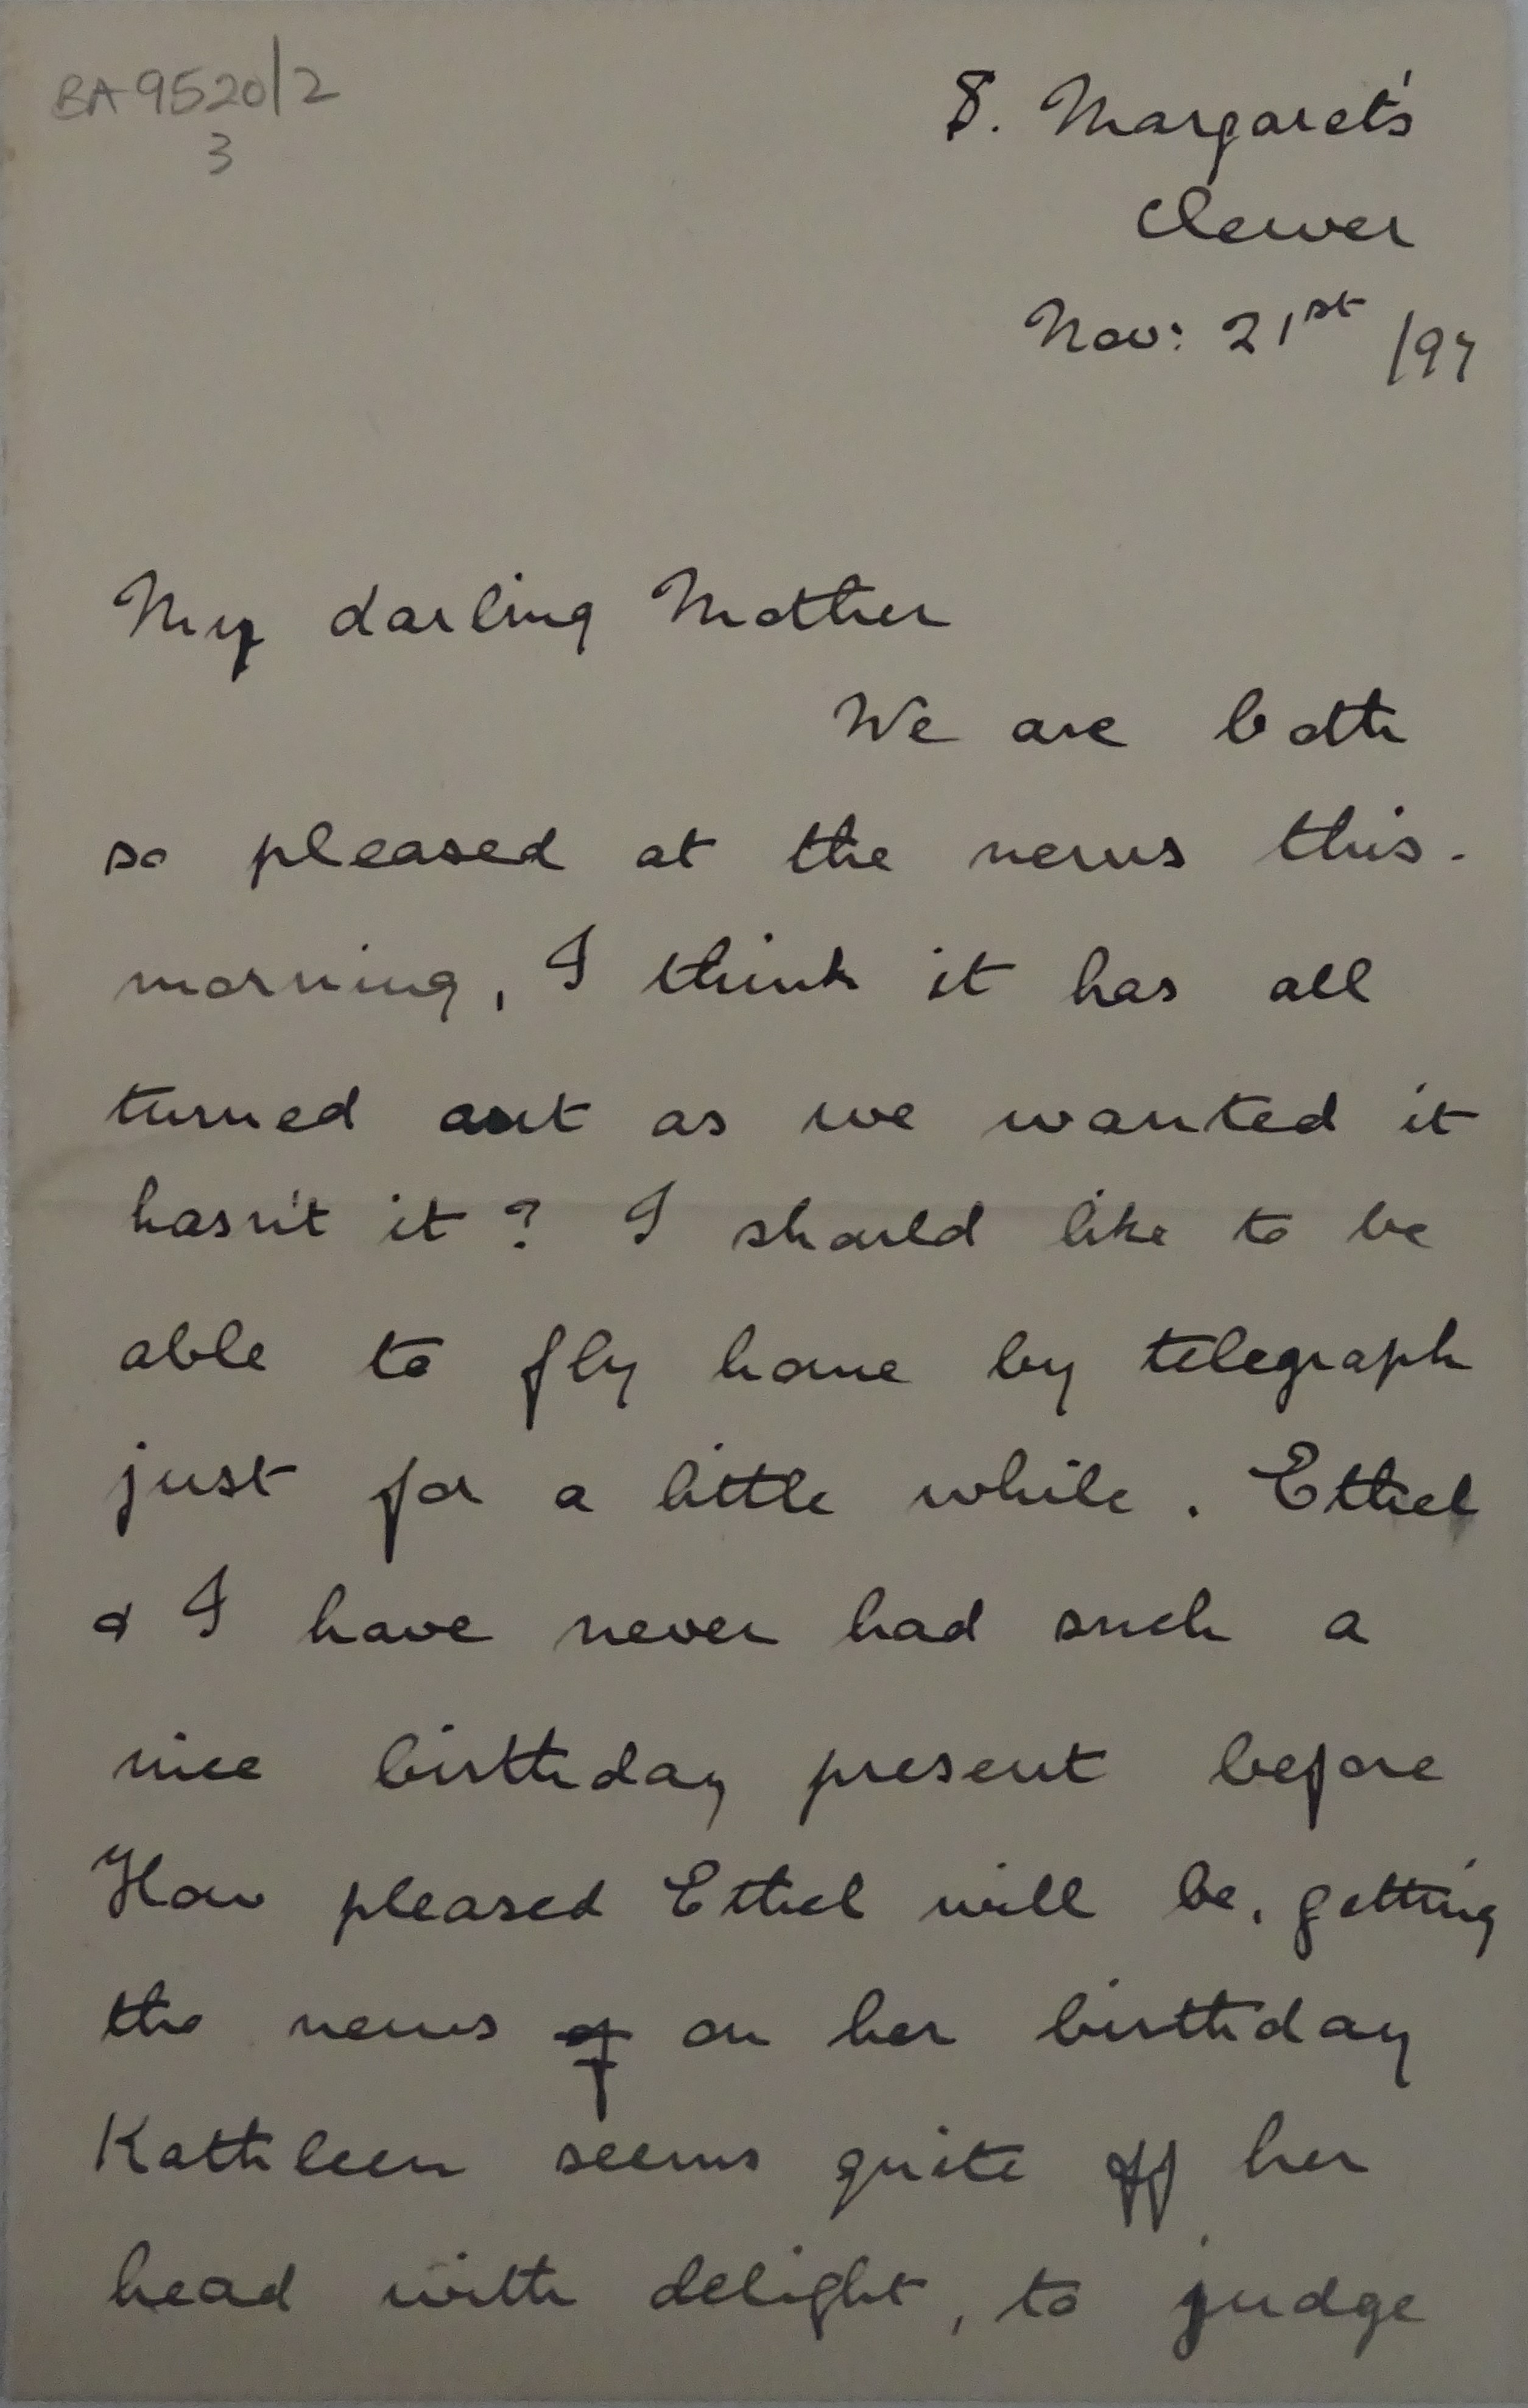 BA 9520/2
3
S. Margaret's
Clewer
Nov: 21st /97
My darling Mother
We are both
so pleased at the news this.
morning, I think it has all
turned out as we wanted it
hasn't it? I should like to be
able to fly home by telegraph
just for a little while. Ethel
& I have never had such a
nice birthday present before
How pleased Ethel will be, getting
the news of on her birthday
Kathleen seems quite off her
head with delight, to judge